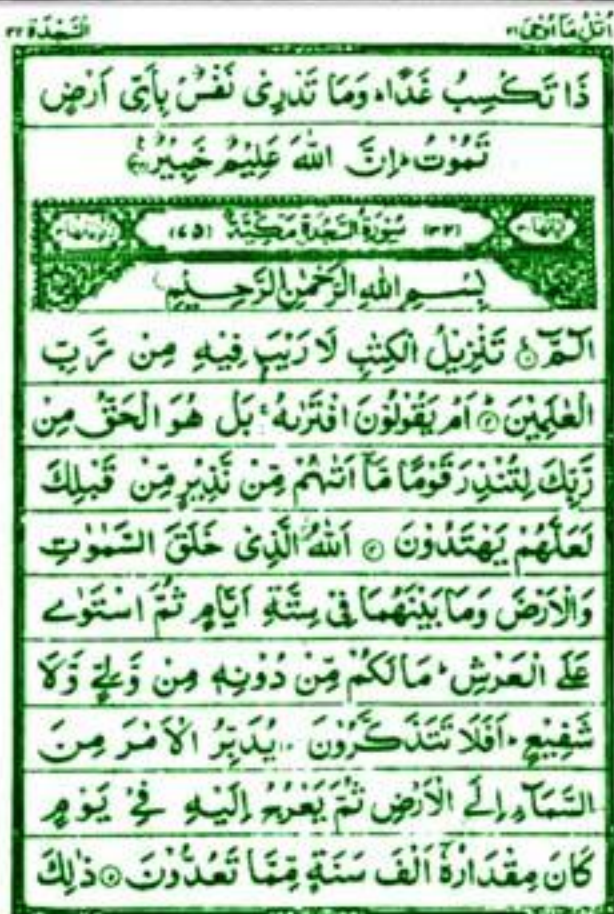 اُتْلُ مَآ اُوْحِیَ ۲۱ السَّجْدَة ۳۲
ذَا تَكْسِبُ غَدًا ؕ وَمَا تَدْرِىْ نَفْسٌۢ بِاَىِّ اَرْضٍ
تَمُوْتُ ؕ اِنَّ اللّٰهَ عَلِيْمٌ خَبِيْرٌ
سُوْرَةُ السَّجْدَةِ مَكِّيَّةٌ (۷۵)
بِسْمِ اللّٰهِ الرَّحْمٰنِ الرَّحِيْمِ
الٓمّٓ ۚ۝ تَنْزِيْلُ الْكِتٰبِ لَا رَيْبَ فِيْهِ مِنْ رَّبِّ
الْعٰلَمِيْنَ ؕ۝ اَمْ يَقُوْلُوْنَ افْتَرٰىهُ ۚ بَلْ هُوَ الْحَقُّ مِنْ
رَّبِّكَ لِتُنْذِرَ قَوْمًا مَّاۤ اَتٰىهُمْ مِّنْ نَّذِيْرٍ مِّنْ قَبْلِكَ
لَعَلَّهُمْ يَهْتَدُوْنَ ۝ اَللّٰهُ الَّذِىْ خَلَقَ السَّمٰوٰتِ
وَالْاَرْضَ وَمَا بَيْنَهُمَا فِىْ سِتَّةِ اَيَّامٍ ثُمَّ اسْتَوٰى
عَلَى الْعَرْشِ ؕ مَا لَكُمْ مِّنْ دُوْنِهٖ مِنْ وَّلِىٍّ وَّلَا
شَفِيْعٍ ؕ اَفَلَا تَتَذَكَّرُوْنَ ۝ يُدَبِّرُ الْاَمْرَ مِنَ
السَّمَآءِ اِلَى الْاَرْضِ ثُمَّ يَعْرُجُ اِلَيْهِ فِىْ يَوْمٍ
كَانَ مِقْدَارُهٗۤ اَلْفَ سَنَةٍ مِّمَّا تَعُدُّوْنَ ۝ ذٰلِكَ